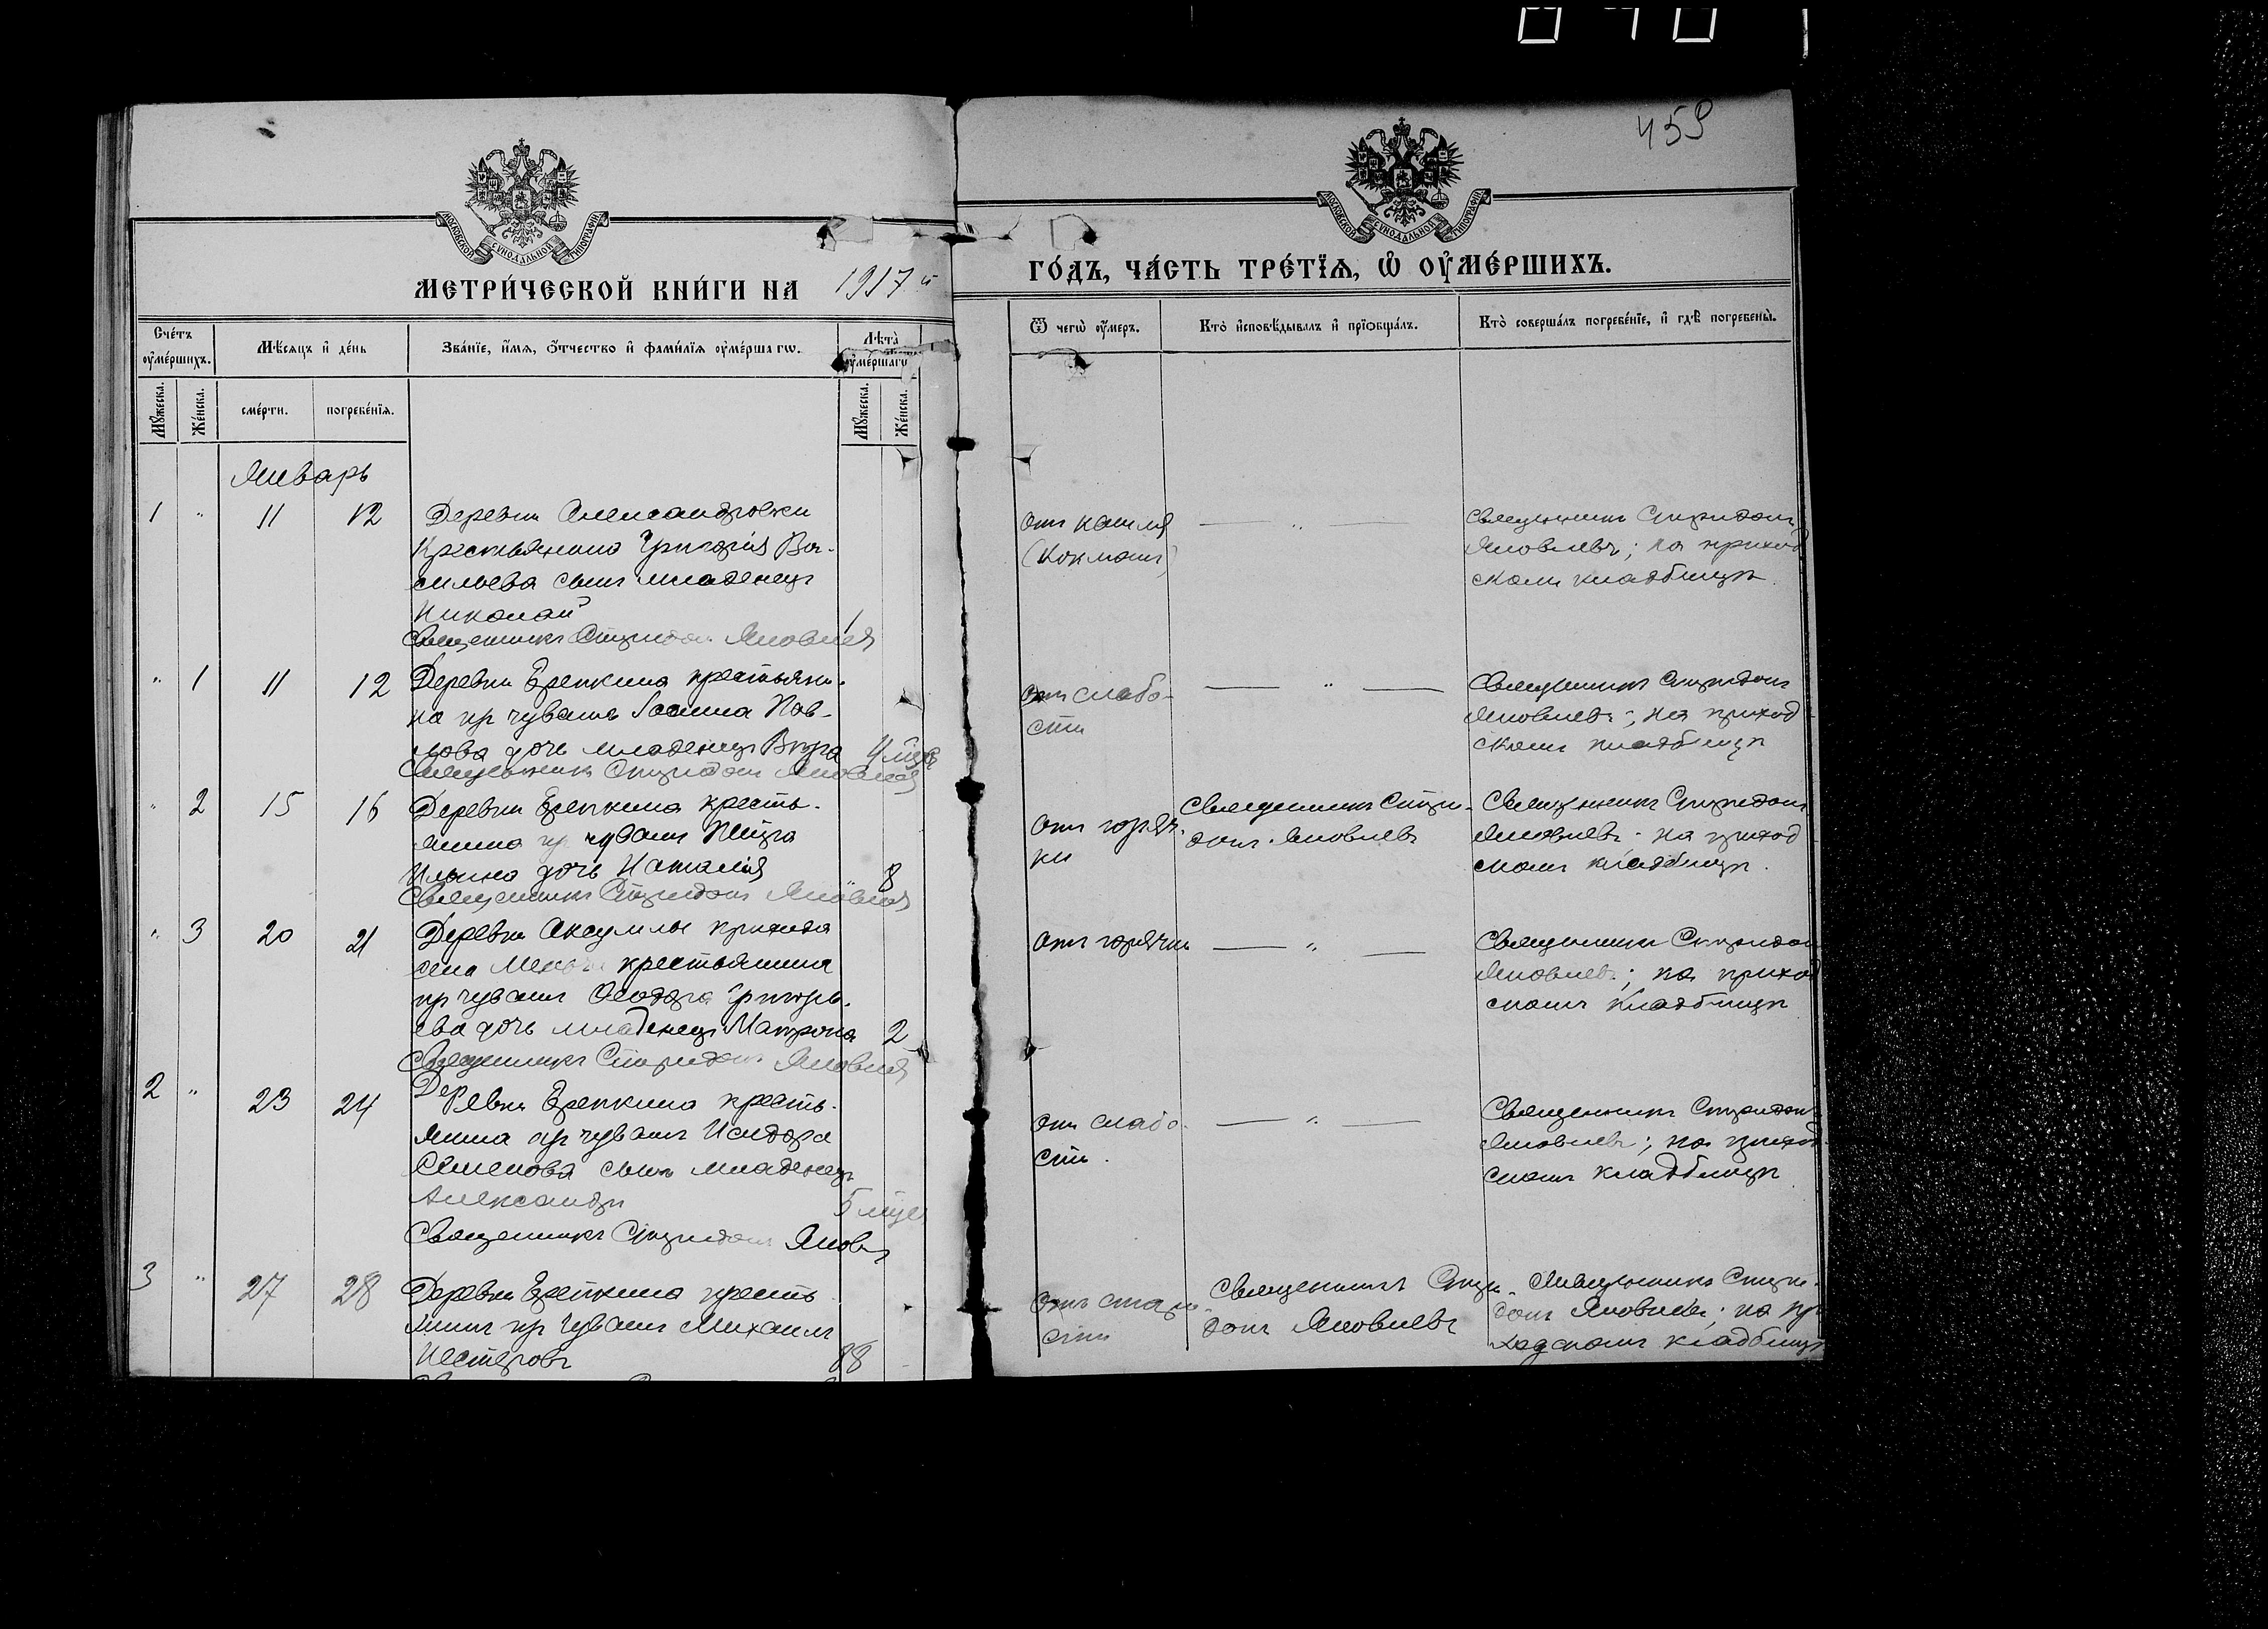 459
МОСКОВСКОЙ СѴНОДАЛЬНОЙ ТИПОГРАФІИ
МОСКОВСКОЙ СѴНОДАЛЬНОЙ ТИПОГРАФІИ
МЕТРИ́ЧЕСКОЙ КНИ́ГИ НА 1917 й
ГО́ДЪ, ЧА́СТЬ ТРЕ́ТЇѦ, Ѡ҆ ОУ҆МЕ́РШИХЪ.
Сче́тъ оу҆ме́ршихъ.
Мѣ́сяцъ и҆ де́нь
Зва́нїе, и҆́мѧ, ѻ҆́тчество и҆ фами́лїѧ оу҆ме́ршагѡ.
Лѣ́та оу҆ме́ршагѡ
Ѿ чегѡ̀ оу҆́меръ.
Кто̀ и҆сповѣ́дывалъ и҆ прїѻбща́лъ.
Кто̀ соверша́лъ погребе́нїе, и҆ гдѣ̀ погребены̀.
Мꙋ́жеска.
Же́нска.
сме́рти.
погребе́нїѧ.
Мꙋ́жеска.
Же́нска.
Январь
1 " 11 12 Деревни Александровки
Крестьянина Григорія Ва-
сильева сынъ младенецъ
Николай 1
Священникъ Спиридонъ Яковлев
отъ кашля
— " —
Священникъ Спиридонъ
Яковлевъ; на приход
скомъ кладбищѣ.
" 1 11 12 Деревни Ерепкина крестьяни-
на из чувашъ Іоанна Пав-
лова дочь младенецъ Вѣра 4 мѣс
Священникъ Спиридонъ Яковлев
отъ слабо-
сти
— " —
Священникъ Спиридонъ
Яковлевъ; на приход
скомъ кладбищѣ
" 2 15 16 Деревни Ерепкина кресть-
янина из чувашъ Петра
Ильина дочь Наталія 8
Священникъ Спиридонъ Яковлев
отъ горяч-
ки
Священникъ Спири-
донъ Яковлевъ
Священникъ Спиридонъ
Яковлевъ на приход
скомъ кладбищѣ.
" 3 20 21 Деревни прихода
села крестьянина
из чувашъ Ѳеодора Григорь-
ева дочь младенецъ Матрона 2
Священникъ Спиридонъ Яковлев
отъ горячки
— " —
Священникъ Спиридон
Яковлевъ; на приход
скомъ кладбищѣ
2 " 23 24 Деревни Ерепкина кресть-
янина из чувашъ Исидора
Семенова сынъ младенецъ
Александръ 5 мѣс
Священникъ Спиридонъ Яковл
отъ слабо-
сти.
— " —
Священникъ Спиридон
Яковлевъ; на приход
скомъ кладбищѣ
3 " 27 28 Деревни Ерепкина кресть
янинъ из чувашъ Михаилъ
Нестеровъ 88
отъ старо-
сти
Священникъ Спири-
донъ Яковлевъ
Священникъ Спири-
донъ Яковлевъ; на при
ходскомъ кладбищѣ